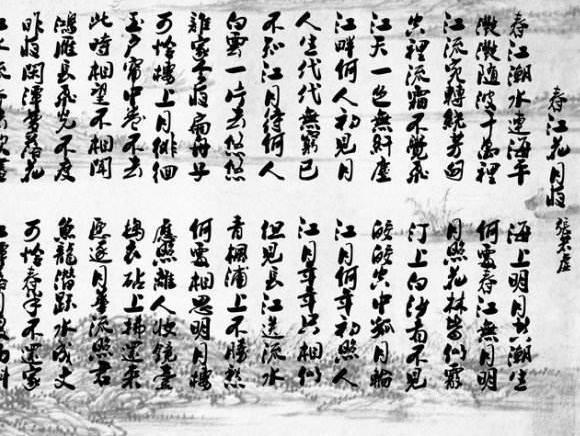 春江花月夜 張若虛
春江潮水連海平 海上明月共潮生
灧灧隨波千萬裡 何處春江無月明
江流宛轉繞芳甸 月照花林皆似霰
空裡流霜不覺飛 汀上白沙看不見
江天一色無纖塵 皎皎空中孤月輪
江畔何人初見月 江月何年初照人
人生代代無窮已 江月年年只相似
不知江月待何人 但見長江送流水
白雲一片去悠悠 青楓浦上不勝愁
誰家今夜扁舟子 何處相思明月樓
可怜樓上月徘徊 應照離人妝鏡臺
玉戶簾中卷不去 搗衣砧上拂還來
此時相望不相聞 願逐月華流照君
鴻雁長飛光不度 魚龍潛躍水成文
昨夜閑潭夢落花 可怜春半不還家